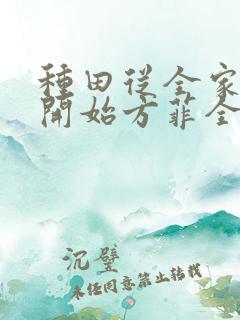 種田從全家
開始方菲全
沉璧
未經同意禁止轉載